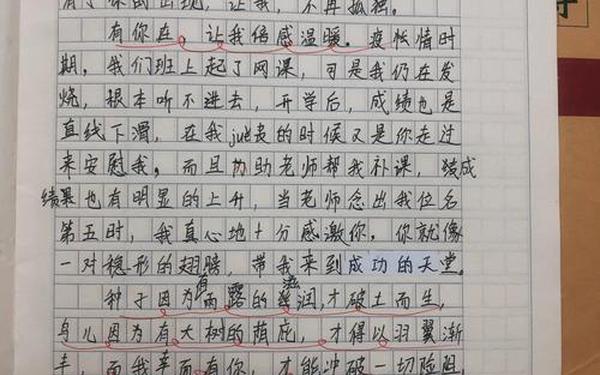 有了你的出现，让我，不再孤独。
有你在，让我倍感温暖。疫情时
期，我们班上起了网课，可是我仍在发
烧，根本听不进去，开学后，成绩也是
直线下滑，在我jue丧的时候又是你走过
来安慰我，而且协助老师帮我补课，成
绩果也有明显的上升，当老师念出我位名
第五时，我真心地十分感激你。你就像
一对隐形的翅膀，带我来到成功的天堂。
种子因为有雨露的滋润，才破土而生，
鸟儿因为有大树的荫庇，才得以羽翼渐
丰，而我幸而有你，才能冲破一切险阻